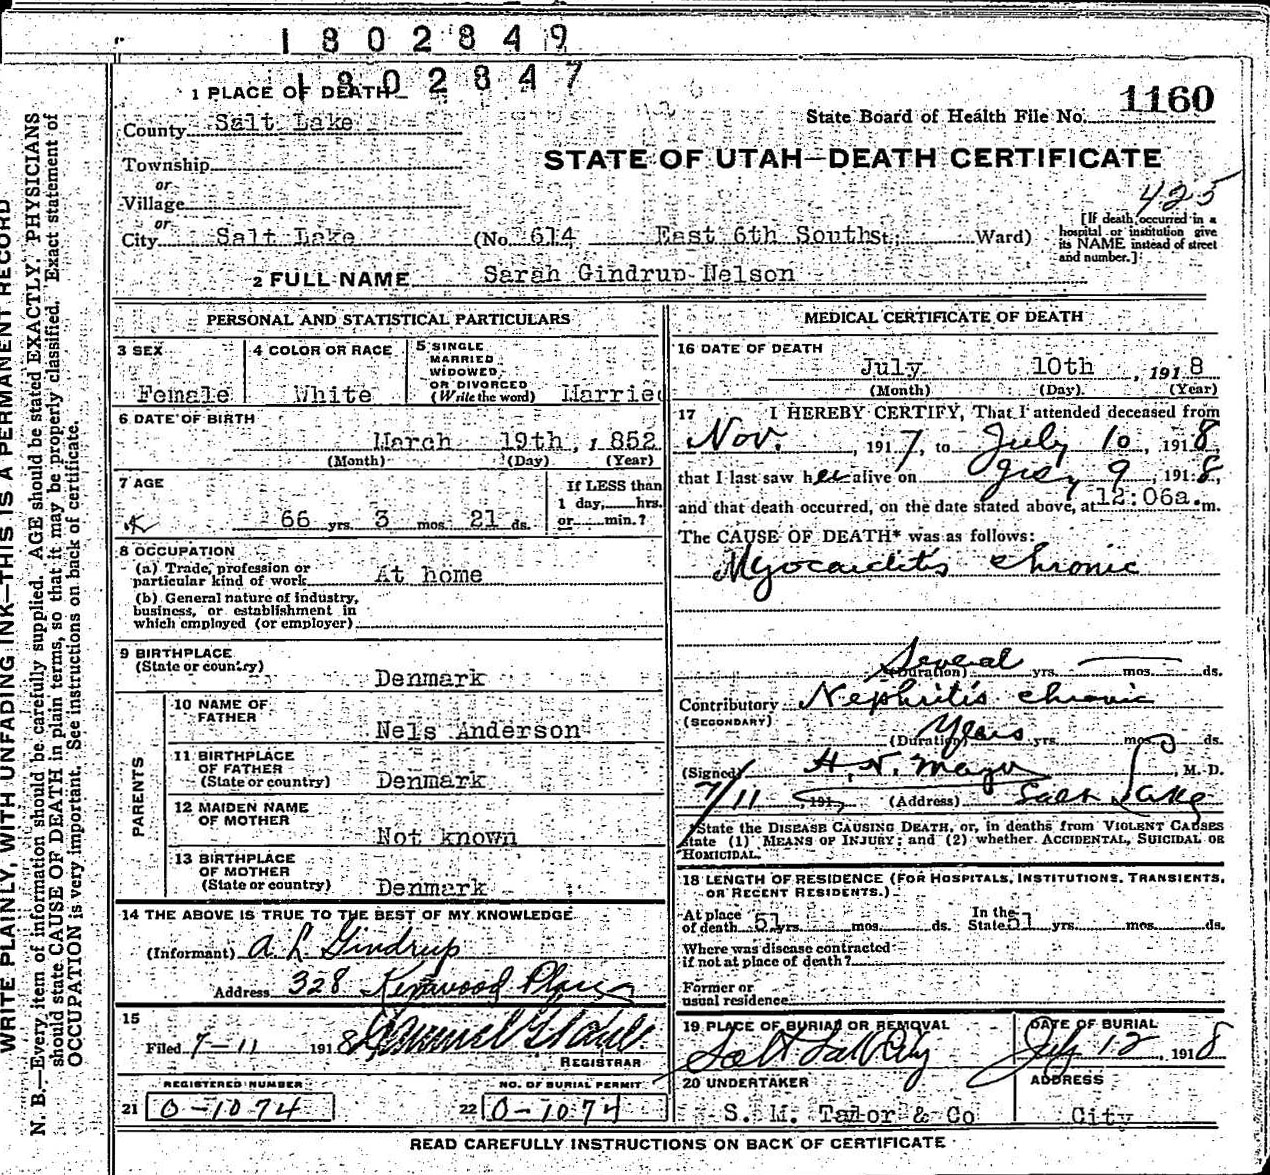 1802849
1802847
1 PLACE OF DEATH
1160
State Board of Health File No.
County Salt Lake
STATE OF UTAH—DEATH CERTIFICATE
Township
or
Village
425
or
City Salt Lake (No. 614 East 6th South St.; Ward)
[If death occurred in a
hospital or institution give
its NAME instead of street
and number.]
2 FULL NAME Sarah Gindrup Nelson
PERSONAL AND STATISTICAL PARTICULARS
3 SEX
Female
4 COLOR OR RACE
White
5 SINGLE
MARRIED
WIDOWED
OR DIVORCED
(Write the word) Married
6 DATE OF BIRTH
March 19th, 1852
(Month) (Day) (Year)
7 AGE
66 yrs. 3 mos. 21 ds.
If LESS than
1 day, hrs.
or min.?
8 OCCUPATION
(a) Trade, profession or
particular kind of work At home
(b) General nature of industry,
business, or establishment in
which employed (or employer)
9 BIRTHPLACE
(State or country)
Denmark
PARENTS
10 NAME OF
FATHER
Nels Anderson
11 BIRTHPLACE
OF FATHER
(State or country) Denmark
12 MAIDEN NAME
OF MOTHER
Not known
13 BIRTHPLACE
OF MOTHER
(State or country) Denmark
14 THE ABOVE IS TRUE TO THE BEST OF MY KNOWLEDGE
(Informant) A L Gindrup
Address 328 Kenwood Place
15
Filed 7-11 1918
REGISTRAR
REGISTERED NUMBER
21 0-1074
NO. OF BURIAL PERMIT
22 0-1074
MEDICAL CERTIFICATE OF DEATH
16 DATE OF DEATH
July 10th, 1918
(Month) (Day) (Year)
17 I HEREBY CERTIFY, That I attended deceased from
Nov. , 1917, to July 10, 1918,
that I last saw her alive on July 9, 1918,
and that death occurred, on the date stated above, at 12:06a.m.
The CAUSE OF DEATH* was as follows:
Myocarditis chronic
Several
(Duration) yrs. mos. ds.
Contributory Nephritis chronic
(SECONDARY)
Years
(Duration) yrs. mos. ds.
(Signed) H. N. Mayo, M. D.
7/11 191 , (Address) Salt Lake
*State the DISEASE CAUSING DEATH, or, in deaths from VIOLENT CAUSES
state (1) MEANS OF INJURY; and (2) whether ACCIDENTAL, SUICIDAL OR
HOMICIDAL.
18 LENGTH OF RESIDENCE (FOR HOSPITALS, INSTITUTIONS, TRANSIENTS,
OR RECENT RESIDENTS.)
At place
of death 51 yrs. mos. ds.
In the
State 51 yrs. mos. ds.
Where was disease contracted
if not at place of death?
Former or
usual residence
19 PLACE OF BURIAL OR REMOVAL
Salt Lake City
DATE OF BURIAL
July 12, 1918
20 UNDERTAKER
S. M. Talor & Co
ADDRESS
City
READ CAREFULLY INSTRUCTIONS ON BACK OF CERTIFICATE
WRITE PLAINLY, WITH UNFADING INK—THIS IS A PERMANENT RECORD
N. B.—Every item of information should be carefully supplied. AGE should be stated EXACTLY. PHYSICIANS
should state CAUSE OF DEATH in plain terms, so that it may be properly classified. Exact statement of
OCCUPATION is very important. See instructions on back of certificate.